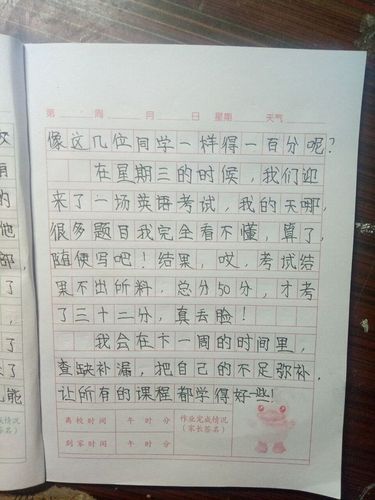 第 周 月 日 星期 天气
像这几位同学一样得一百分呢?
在星期三的时候,我们迎
来了一场英语考试,我的天哪,
很多题目我完全看不懂,算了,
随便写吧!结果,哎,考试结
果不出所料,总分50分,才考
了三十二分,真丢脸!
我会在下一周的时间里,
查缺补漏,把自己的不足弥补,
让所有的课程都学得好些!
离校时间 午 时 分 作业完成情况
(家长签名)
到家时间 午 时 分
的
他
了
了
能